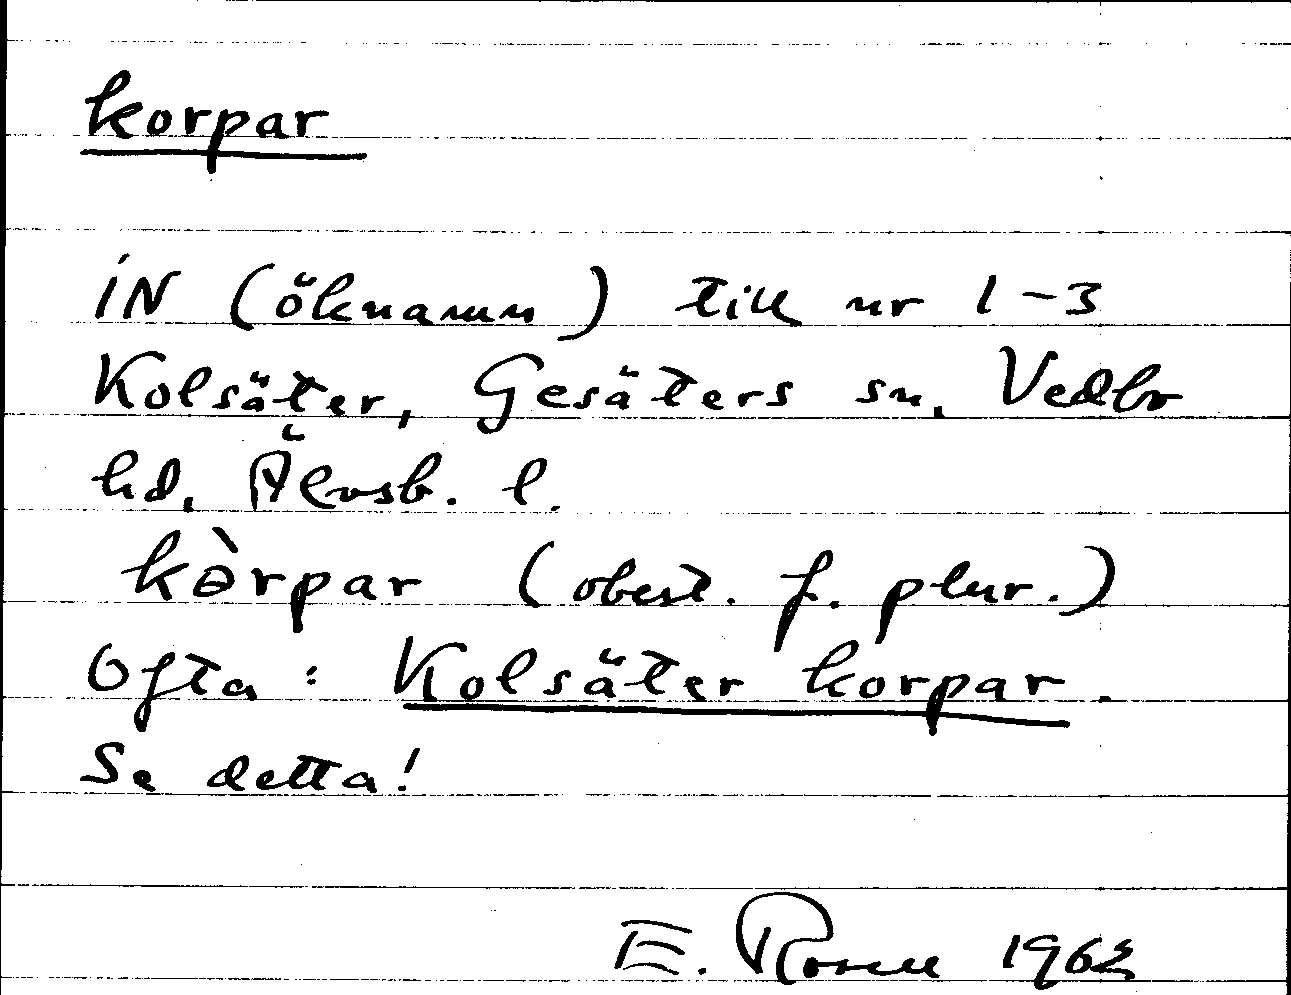 korpar
iN (öknamn) till nr 1-3
Kolsäter, Gesäters sn, Vedbo
hd, Älvsb. l.
kɵ̀rpar (obest. f. plur.)
Ofta: Kolsäter korpar.
Se detta!
E. Rosell 1963